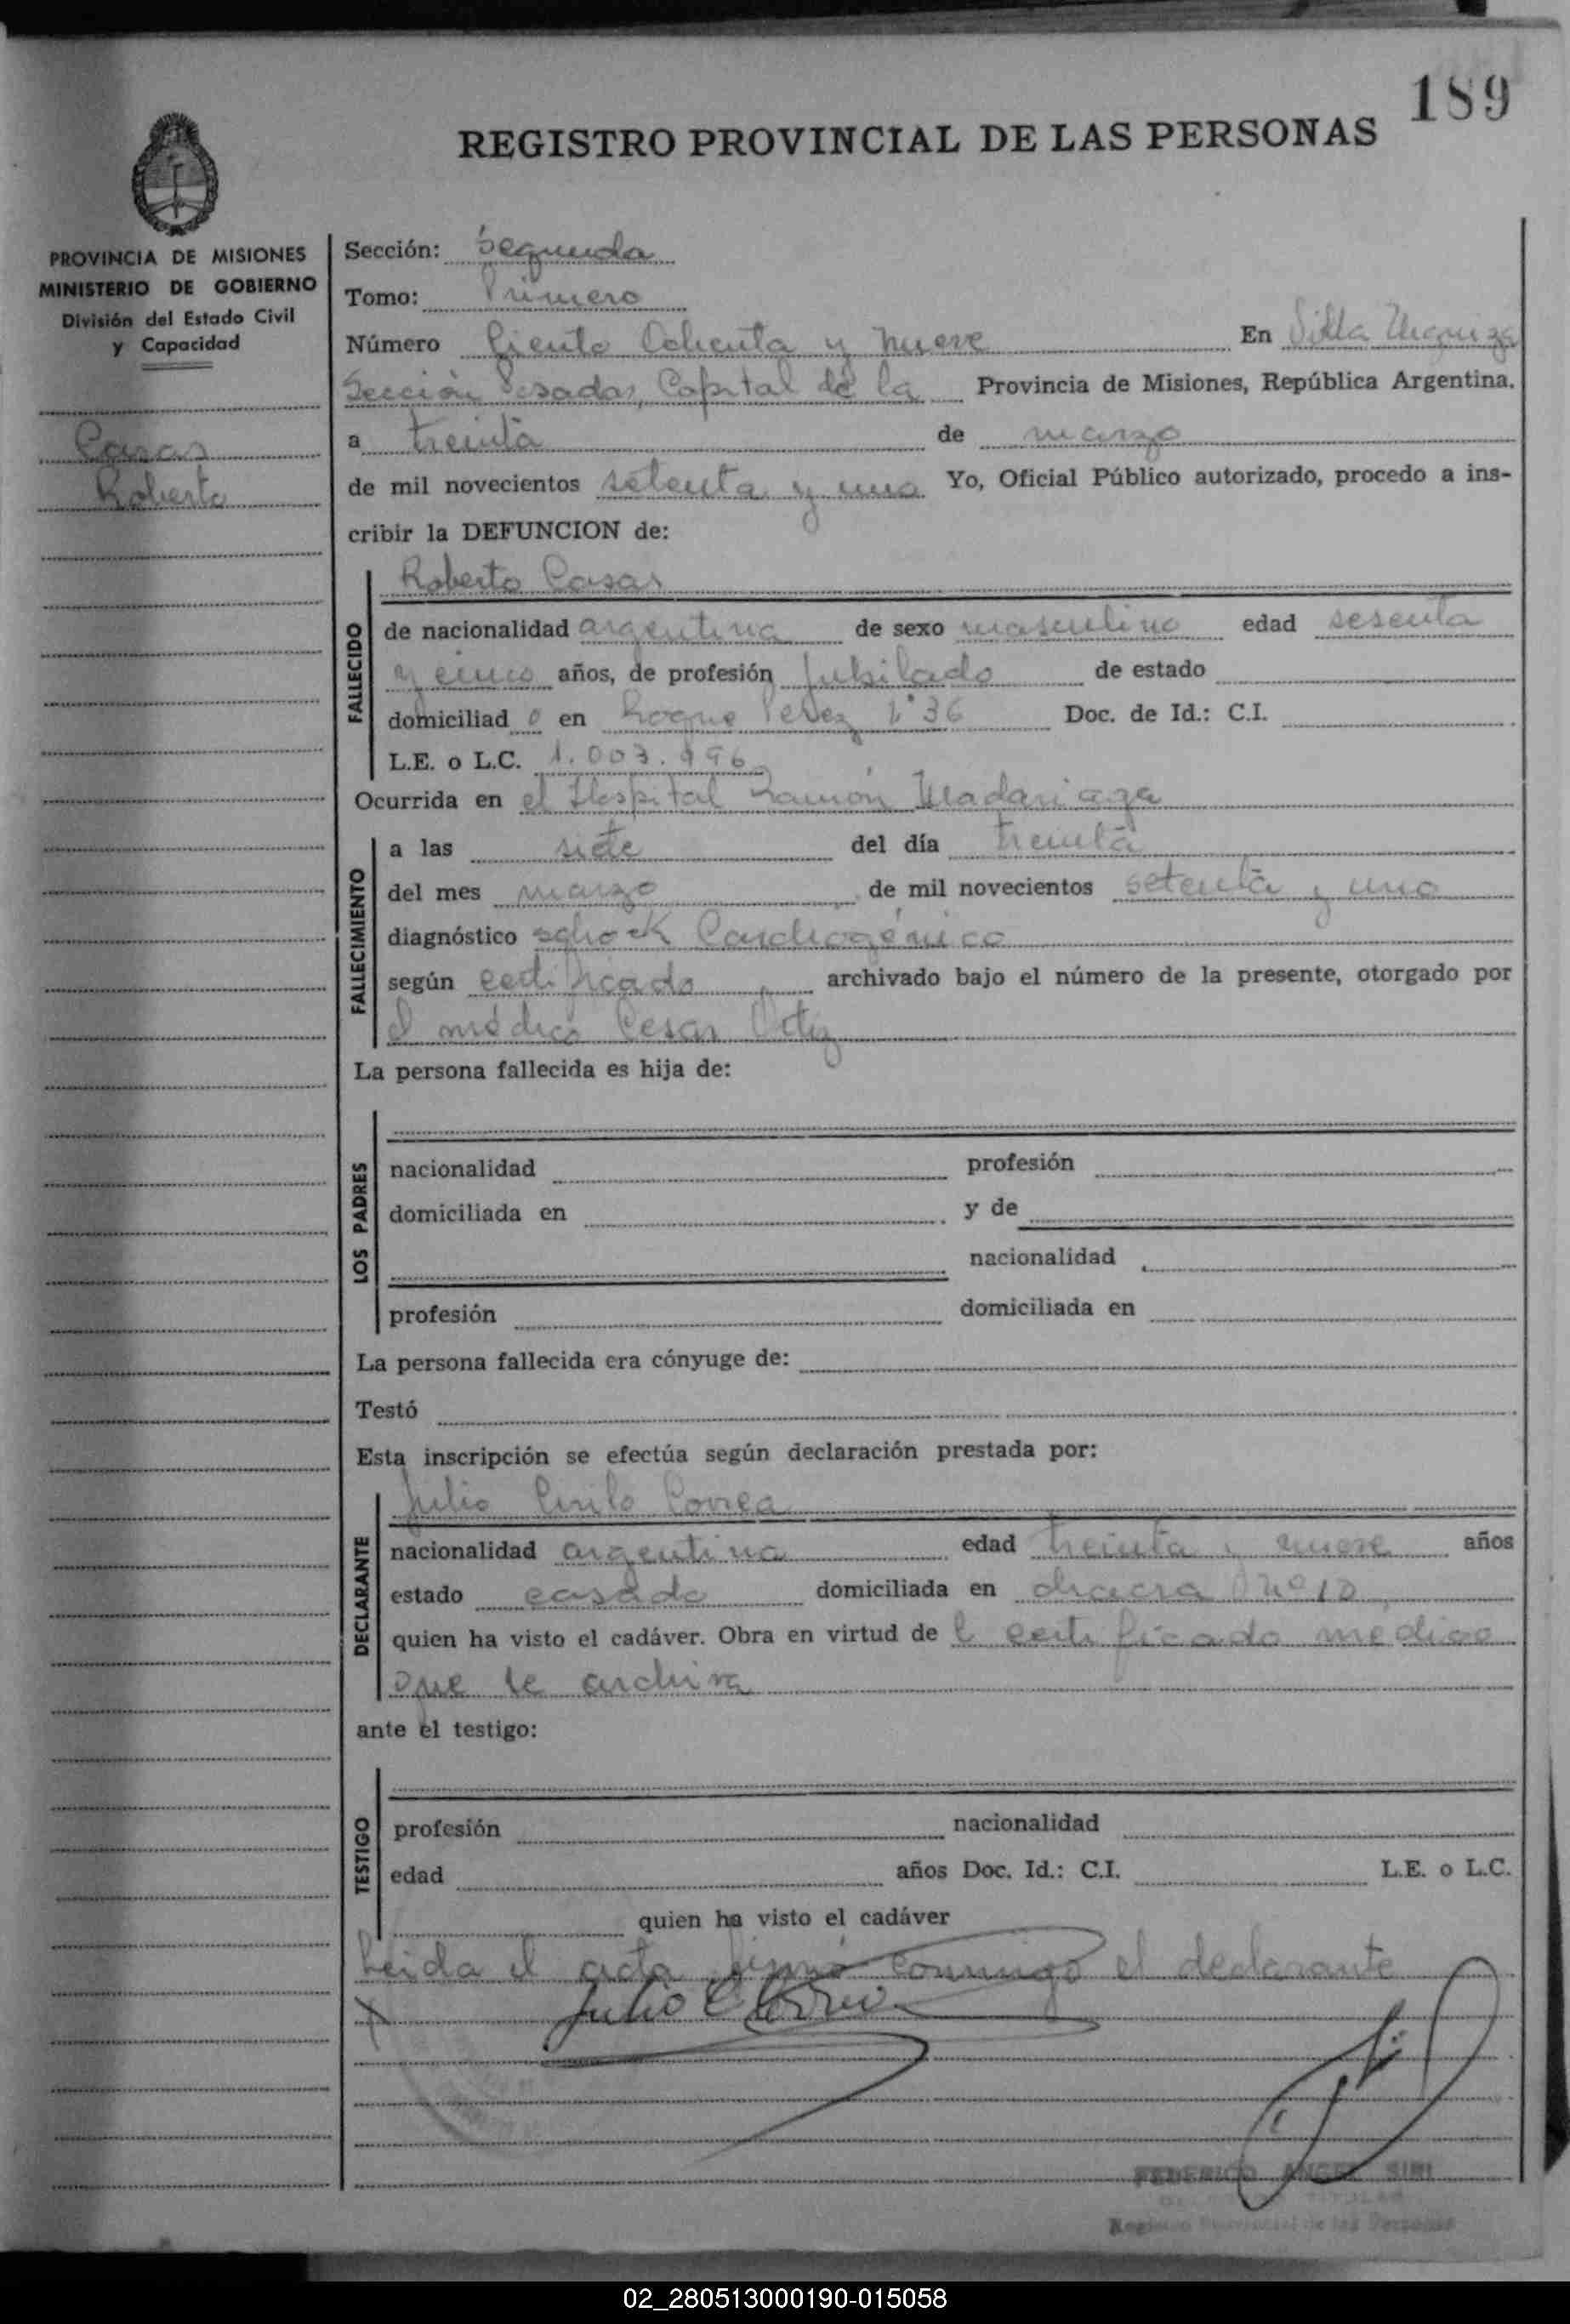 189
REGISTRO PROVINCIAL DE LAS PERSONAS
PROVINCIA DE MISIONES
MINISTERIO DE GOBIERNO
División del Estado Civil
y Capacidad
Casas
Roberto
Sección: Segunda
Tomo: Primero
Número Ciento Ochenta y nueve En Villa Urquiza
Sección Posadas, Capital de la Provincia de Misiones, República Argentina.
a treinta de marzo
de mil novecientos setenta y uno Yo, Oficial Público autorizado, procedo a ins-
cribir la DEFUNCION de:
FALLECIDO
Roberto Casas
de nacionalidad argentina de sexo masculino edad sesenta
y cinco años, de profesión Jubilado de estado
domiciliad o en Roque Perez 36 Doc. de Id.: C.I.
L.E. o L.C. 1.003.996
Ocurrida en el Hospital Ramón Madariaga
FALLECIMIENTO
a las siete del día treinta
del mes marzo de mil novecientos setenta y uno
diagnóstico schock Cardiogénico
según certificado archivado bajo el número de la presente, otorgado por
el médico Cesar Ortiz
La persona fallecida es hija de:
LOS PADRES
nacionalidad profesión
domiciliada en y de
nacionalidad
profesión domiciliada en
La persona fallecida era cónyuge de:
Testó
Esta inscripción se efectúa según declaración prestada por:
DECLARANTE
Julio Cirilo Correa
nacionalidad argentina edad treinta y nueve años
estado casado domiciliada en chacra nº 10
quien ha visto el cadáver. Obra en virtud de l certificado médico
que se archiva
ante el testigo:
TESTIGO
profesión nacionalidad
edad años Doc. Id.: C.I. L.E. o L.C.
quien ha visto el cadáver
Leida el acta firmó conmigo el declarante
X Julio C Correa
FEDERICO ANGEL SIRI
Registro Provincial de las Personas
02_280513000190-015058